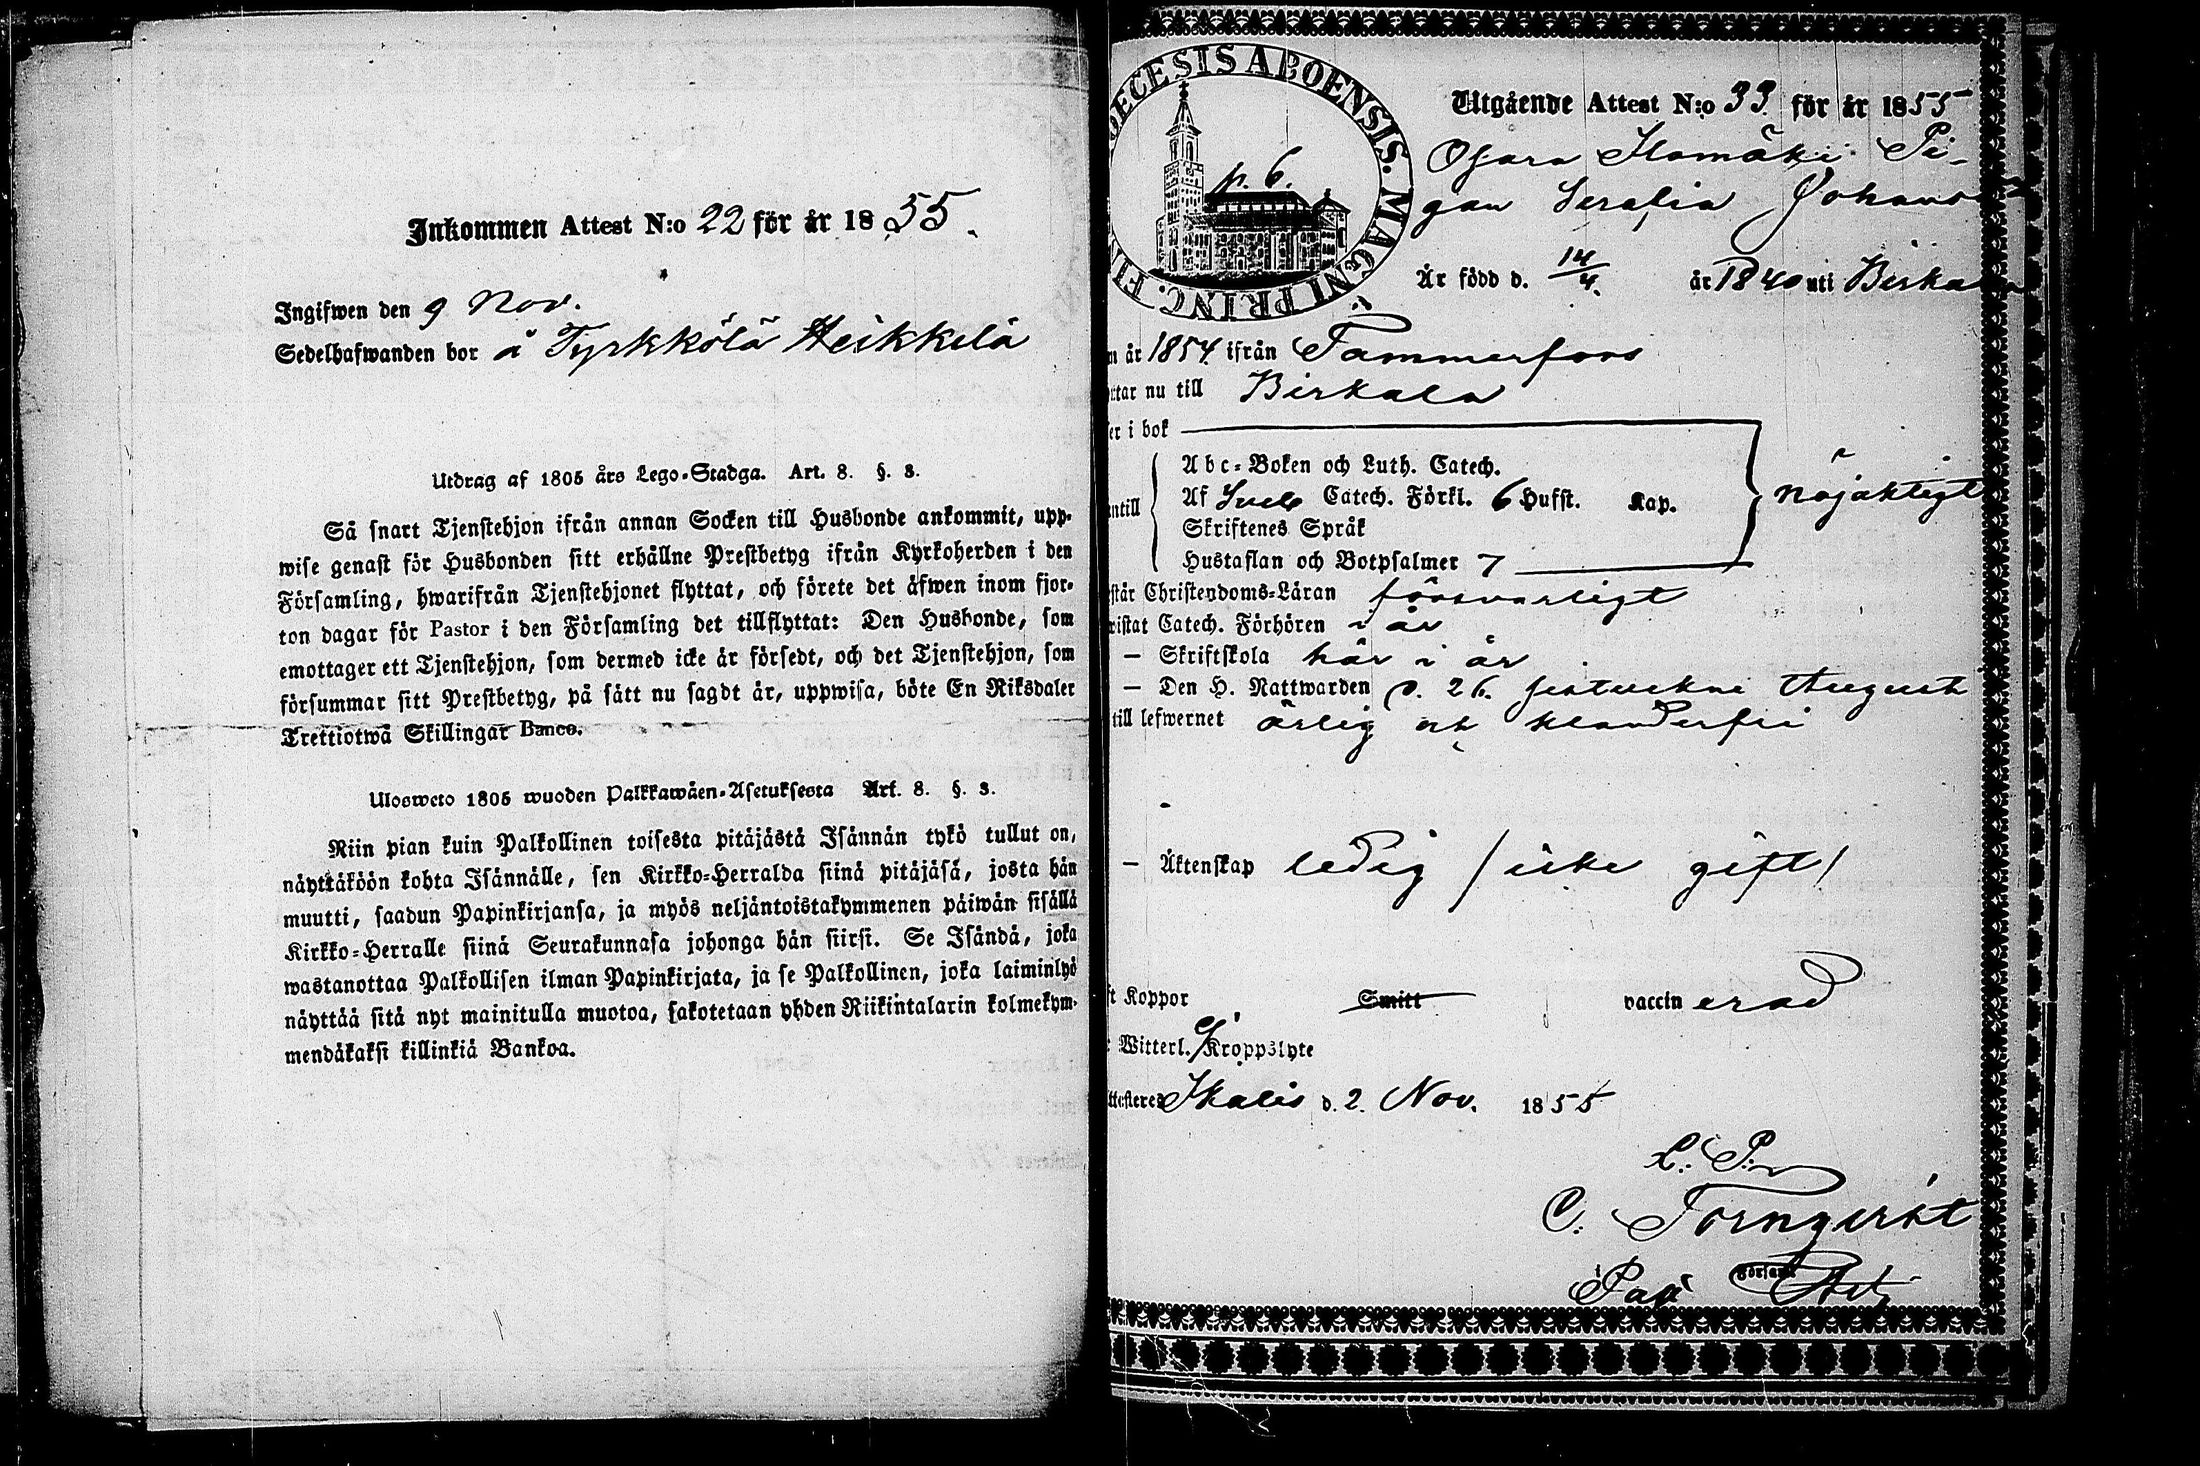 Inkommen Attest N:o 22 för år 1855.
Ingifwen den 9 Nov.
Sedelhafwanden bor å Tyrkkölä Heikkilä
Utdrag af 1805 års Lego-Stadga. Art. 8. §. 3.
Så snart Tjenstehjon ifrån annan Socken till Husbonde ankommit, upp-
wise genast för Husbonden sitt erhållne Prestbetyg ifrån Kyrkoherden i den
Församling, hwarifrån Tjenstehjonet flyttat, och förete det äfwen inom fjor-
ton dagar för Pastor i den Församling det tillflyttat: Den Husbonde, som
emottager ett Tjenstehjon, som dermed icke är försedt, och det Tjenstehjon, som
försummar sitt Prestbetyg, på sätt nu sagdt är, uppwisa, böte En Riksdaler
Trettiotwå Skillingar Banco.
Ulosweto 1805 wuoden Palkkawäen-Asetuksesta Art. 8. §. 3.
Niin pian kuin Palkollinen toisesta pitäjästä Isännän tykö tullut on,
näyttäköön kohta Isännälle, sen Kirkko-Herralda siinä pitäjäsä, josta hän
muutti, saadun Papinkirjansa, ja myös neljäntoistakymmenen päiwän sisällä
Kirkko-Herralle siinä Seurakunnasa johonga hän siirsi. Se Isändä, joka
wastanottaa Palkollisen ilman Papinkirjata, ja se Palkollinen, joka laiminlyö
näyttää sitä nyt mainitulla muotoa, sakotetaan yhden Riikintalarin kolmekym-
mendäkaksi killinkiä Bankoa.
ECESIS ABOENSIS. MAGNI PRINC. FIN
p. 6.
Utgående Attest N:o 33 för år 1855
Ilamäki Pi-
gan Serafia Johans
Är född d. 14/4. år 1840 uti Birkala
år 1854 ifrån Tammerfors
tar nu till Birkala
er i bok
Abc-Boken och Luth. Catech.
ntill Af Sveb Catech. Förkl. 6 Hufst. Kap. nöjaktigt
Skriftenes Språk
Hustaflan och Botpsalmer 7
står Christendoms-Läran försvarligt
vistat Catech. Förhören i år
— Skriftskola här i år
— Den H. Nattwarden d. 26. sistvekne Augusti
till lefwernet ärlig och klanderfri
— Äktenskap ledig / icke gift /
ft Koppor Smitt vaccin erad
Witterl. Kroppslyte
ttesteres Ikalis d. 2. Nov. 1855
L. P.
C. Törnqvist
Församl.